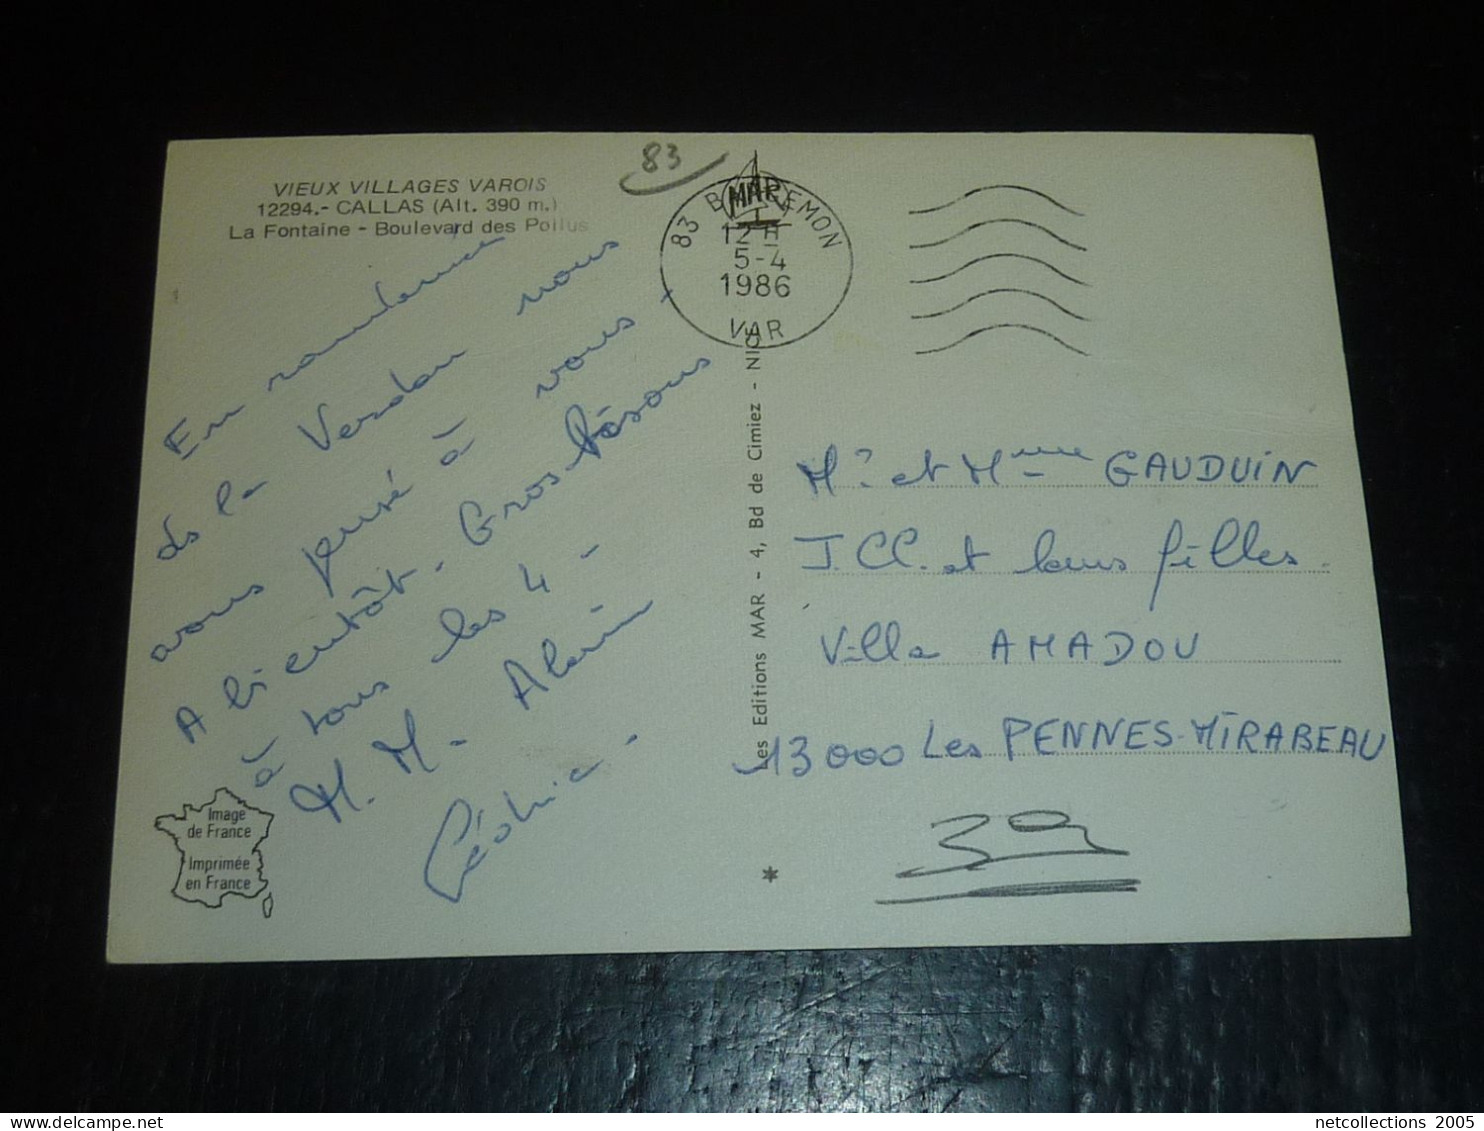 83
VIEUX VILLAGES VAROIS
12294.- CALLAS (Alt. 390 m.)
La Fontaine - Boulevard des Poilus
MAR
83 BARGEMON
12 H
5-4
1986
VAR
En randonnée
ds le Verdon nous
avons pensé à vous -
A bientôt - Gros bisous
à tous les 4 -
M. M - Alain
Cédric -
Les Editions MAR - 4, Bd de Cimiez - NICE
Mr et Mme GAUDUIN
J.CC. et leurs filles.
Villa AMADOU
13000 Les PENNES-MIRABEAU
Image
de France
Imprimée
en France
*
netcollections 2005